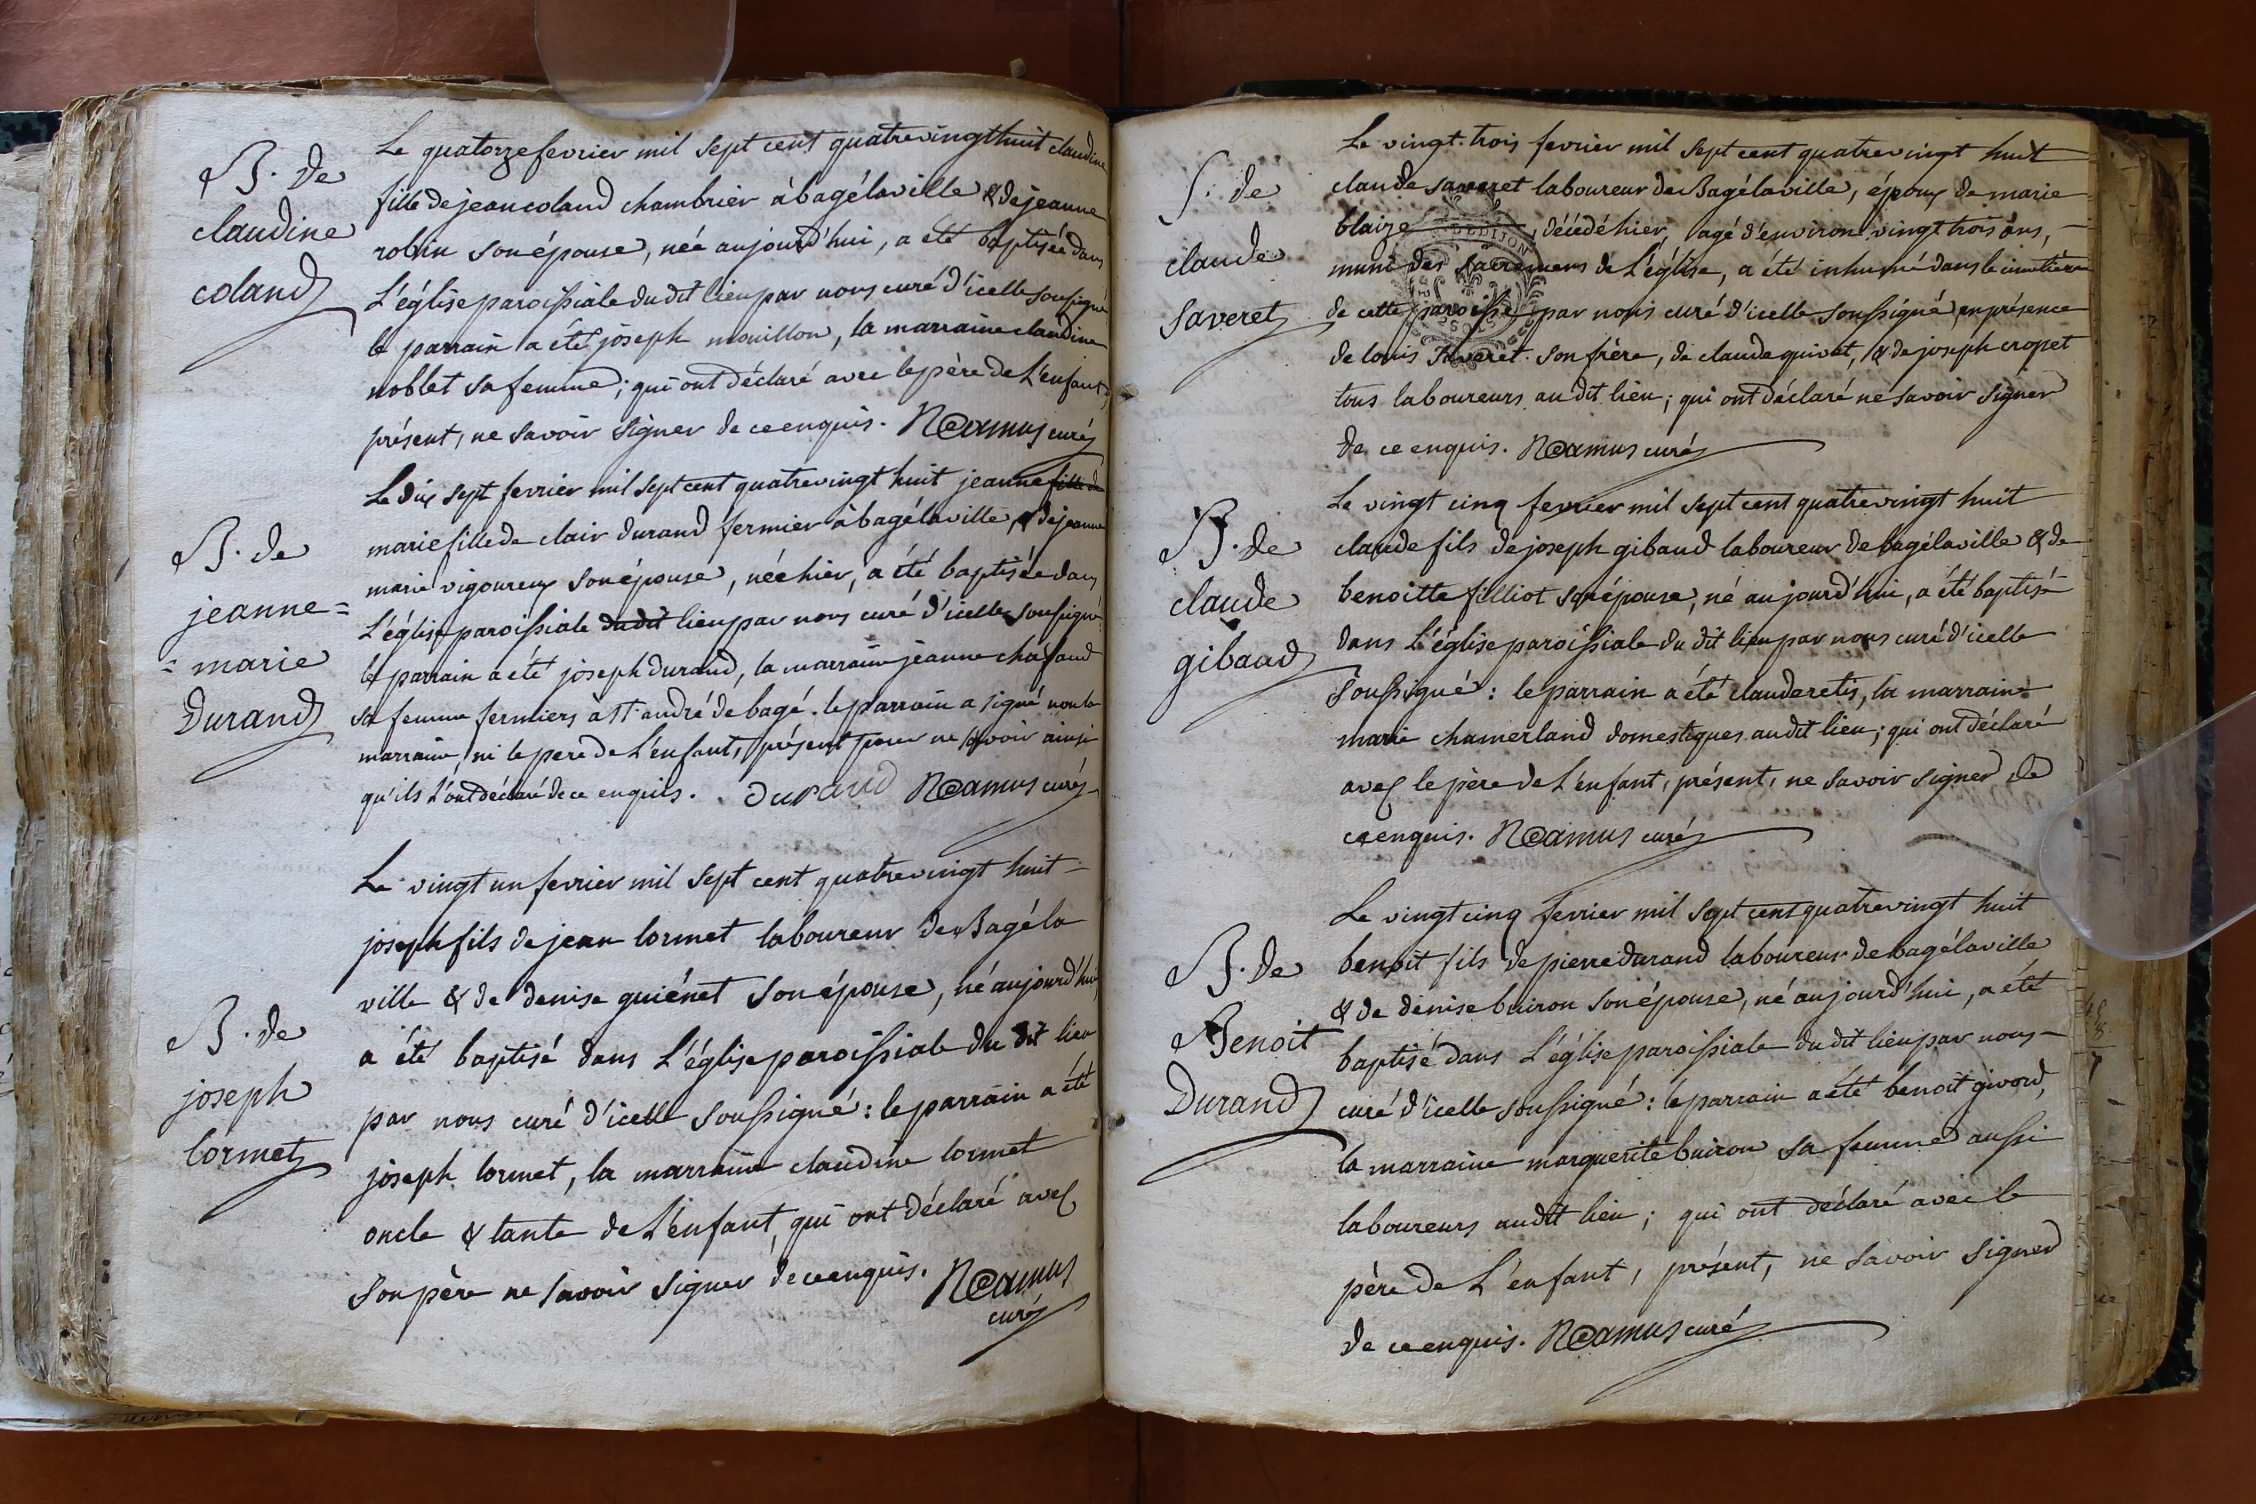 B. de
claudine
coland
Le quatorze fevrier mil sept cent quatrevingt huit claudine
fille de jean coland chambrier à bagélaville & de jeanne
robin son épouse, née aujourd'hui, a été baptisée dans
L'église paroissiale du dit lieu par nous curé d'icelle soussigné
le parrain a été joseph mouillon, la marraine claudine
noblet sa femme; qui ont déclaré avec le père de L'enfant,
présent, ne savoir signer de ce enquis. Neamus curé
B. de
jeanne=
= marie
Durand
Le dix sept fevrier mil sept cent quatrevingt huit jeanne fille de
marie fille de clair durand fermier à bagélaville, & de jeanne
marie vigoureux son épouse, née hier, a été baptisée dans
L'église paroissiale du dit lieu par nous curé d'icelle soussigné
le parrain a été joseph durand, la marraine jeanne chafaud
sa femme fermiers à St andré de bagé. le parrain a signé non la
marraine, ni le pere de L'enfant, présent pour ne savoir ainsi
qu'ils L'ont déclaré de ce enquis. durand Neamus curé
B. de
joseph
lormet
Le vingt un fevrier mil sept cent quatrevingt huit -
joseph fils de jean lormet laboureur de Bagéla
ville & de denise guiénet son épouse, né aujourd'hui,
a été baptisé dans L'église paroissiale du dit lieu
par nous curé d'icelle soussigné: le parrain a été
joseph lormet, la marraine claudine lormet
oncle & tante de L'enfant, qui ont déclaré avec
son père ne savoir signer de ce enquis. Neamus
curé
S. de
claude
Saveret
Le vingt-trois fevrier mil sept cent quatrevingt huit
claude saveret laboureur de Bagélaville, époux de marie
blaize, décédé hier, agé d'environ vingt trois ans, -
muni des sacremens de L'église, a été inhumé dans le cimetière
de cette paroisse par nous curé d'icelle soussigné, en présence
de louis Saveret son frère, de claude quivet, & de joseph cropet
tous laboureurs au dit lieu; qui ont déclaré ne savoir signer
de ce enquis. Neamus curé
B. de
claude
gibaud
Le vingt cinq fevrier mil sept cent quatrevingt huit
claude fils de joseph gibaud laboureur de bagélaville & de
benoitte filliot son épouse, né aujourd'hui, a été baptisé
dans L'église paroissiale du dit lieu par nous curé d'icelle
soussigné: le parrain a été claude retis, la marraine
marie chamerland domestiques au dit lieu; qui ont déclaré
avec le père de L'enfant, présent, ne savoir signer de
ce enquis. Neamus curé
B. de
Benoit
Durand
Le vingt cinq fevrier mil sept cent quatrevingt huit
benoit fils de pierre durand laboureur de bagélaville
& de denise buiron son épouse, né aujourd'hui, a été
baptisé dans L'église paroissiale du dit lieu par nous -
curé d'icelle soussigné: le parrain a été benoit givord,
la marraine marguerite buiron sa femme aussi
laboureurs au dit lieu; qui ont déclaré avec le
père de L'enfant, présent, ne savoir signer
de ce enquis. Neamus curé